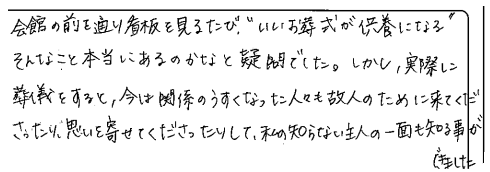 会館の前を通り看板を見るたび、"いいお葬式が供養になる"
そんなこと本当にあるのかなと疑問でした。しかし、実際に
葬儀をすると、今は関係のうすくなった人々も故人のために来てくだ
さったり、思いを寄せてくださったりして、私の知らない主人の一面も知る事が
できました